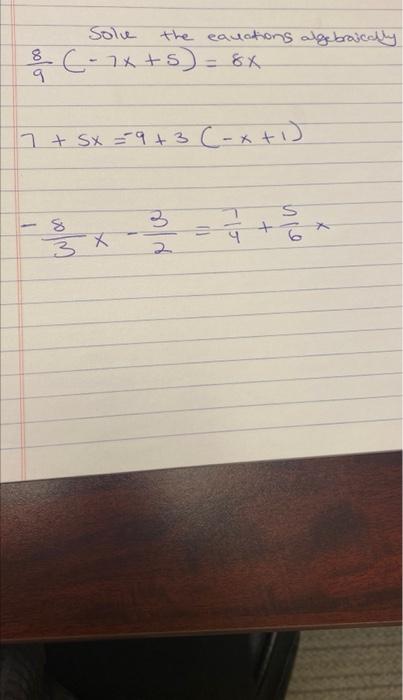 Solve the equations algebraically
8/9 (-7x+5) = 8x
7 + 5x = -9 + 3 (-x+1)
-8/3 x - 3/2 = 7/4 + 5/6 x